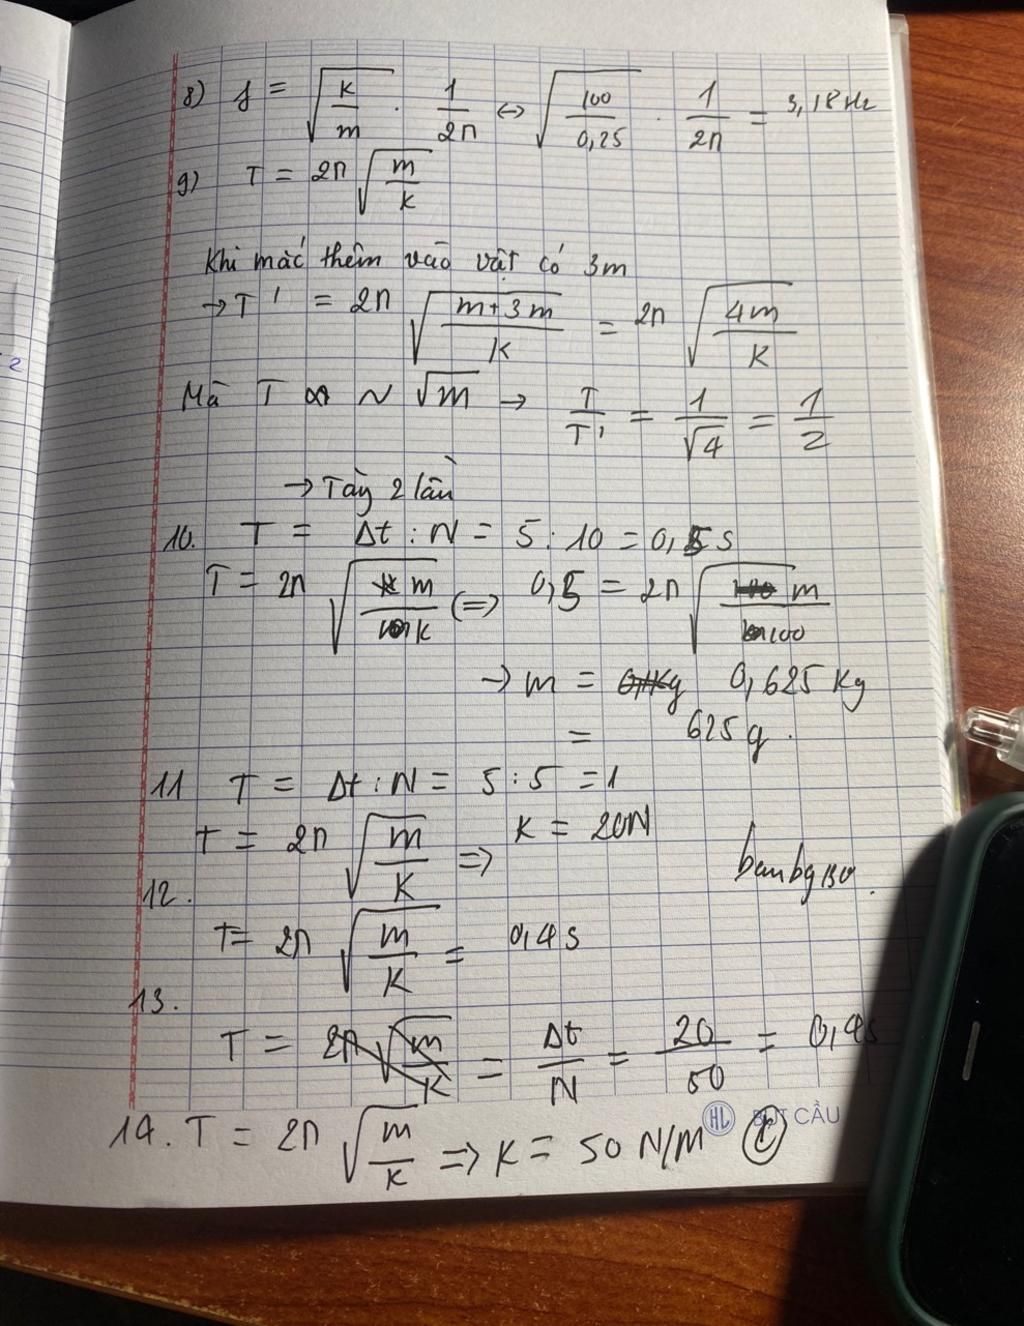 8) f = √(k/m) · 1/2π ↔ √(100/0,25) · 1/2π = 3,18 Hz
9) T = 2π √(m/k)
Khi mắc thêm vào vật có 3m
→ T' = 2π √((m+3m)/k) = 2π √(4m/k)
Mà T ~ √m → T/T' = 1/√4 = 1/2
→ Tăg 2 lần
10. T = Δt : N = 5 : 10 = 0,5 s
T = 2π √(m/k) (=) 0,5 = 2π √(m/100)
→ m = 0,625 kg
= 625 g.
11 T = Δt : N = 5 : 5 = 1
T = 2π √(m/k) => k = 20N
12.
T = 2π √(m/k) = 0,4s
13.
T = 2π √(m/k) = Δt/N = 20/50 = 0,4s
14. T = 2π √(m/k) => k = 50 N/M C
HL BÚT CẦU